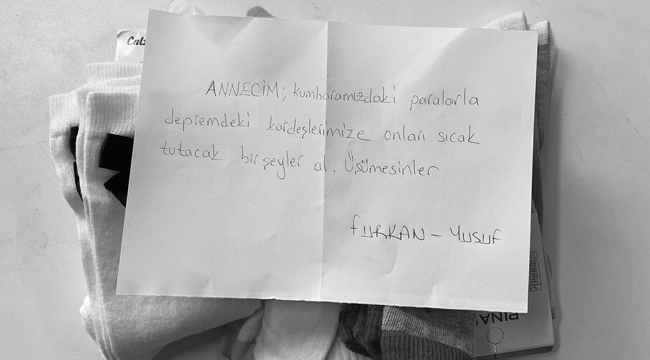 Cal
ANNECİM; kumbaramızdaki paralarla
depremdeki kardeşlerimize onları sıcak
tutacak bir şeyler al. Üşümesinler
FURKAN - YUSUF
RINA